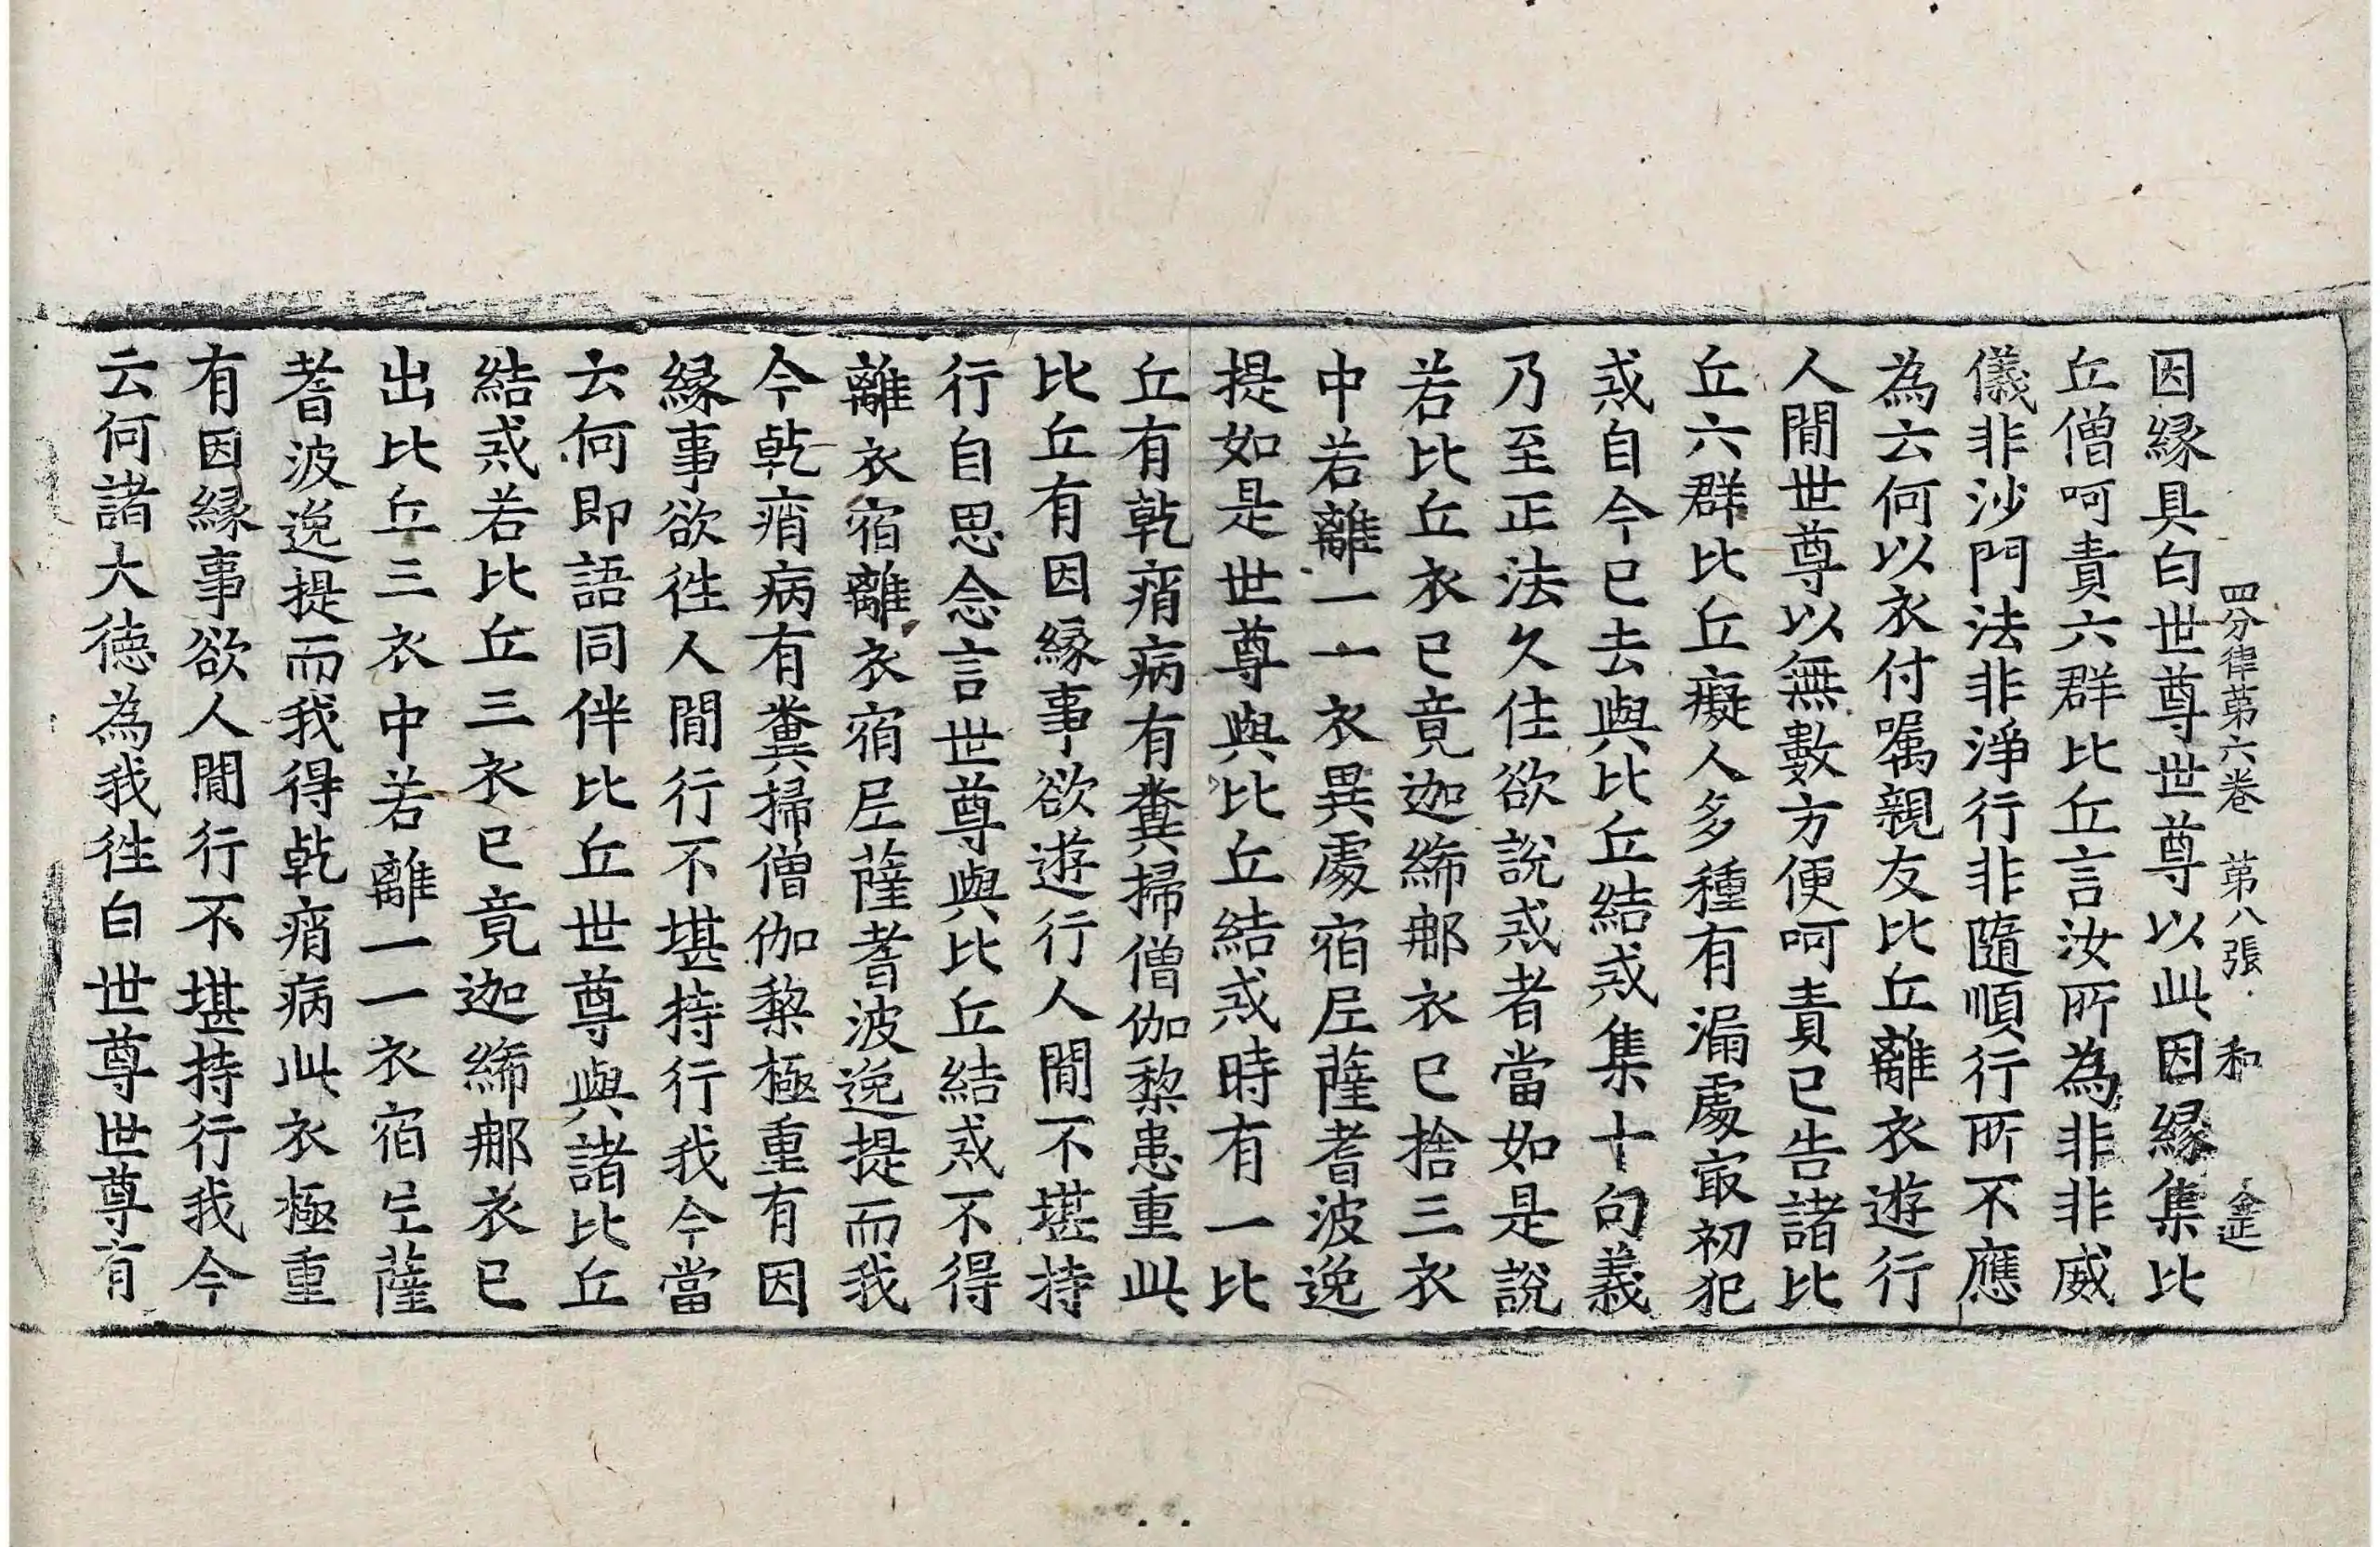 四分律第六卷 第八張 和
因緣具白世尊世尊以此因緣集比
丘僧呵責六群比丘言汝所為非非威
儀非沙門法非淨行非隨順行所不應
為云何以衣付囑親友比丘離衣遊行
人間世尊以無數方便呵責已告諸比
丘六群比丘癡人多種有漏處最初犯
戒自今已去與比丘結戒集十句義
乃至正法久住欲說戒者當如是說
若比丘衣已竟迦絺那衣已捨三衣
中若離一一衣異處宿尼薩耆波逸
提如是世尊與比丘結戒時有一比
丘有乾痟病有糞掃僧伽梨患重此
比丘有因緣事欲遊行人間不堪持
行自思念言世尊與比丘結戒不得
離衣宿離衣宿尼薩耆波逸提而我
今乾痟病有糞掃僧伽梨極重有因
緣事欲往人間行不堪持行我今當
云何即語同伴比丘世尊與諸比丘
結戒若比丘三衣已竟迦絺那衣已
出比丘三衣中若離一一衣宿尼薩
耆波逸提而我得乾痟病此衣極重
有因緣事欲人間行不堪持行我今
云何諸大德為我往白世尊世尊有